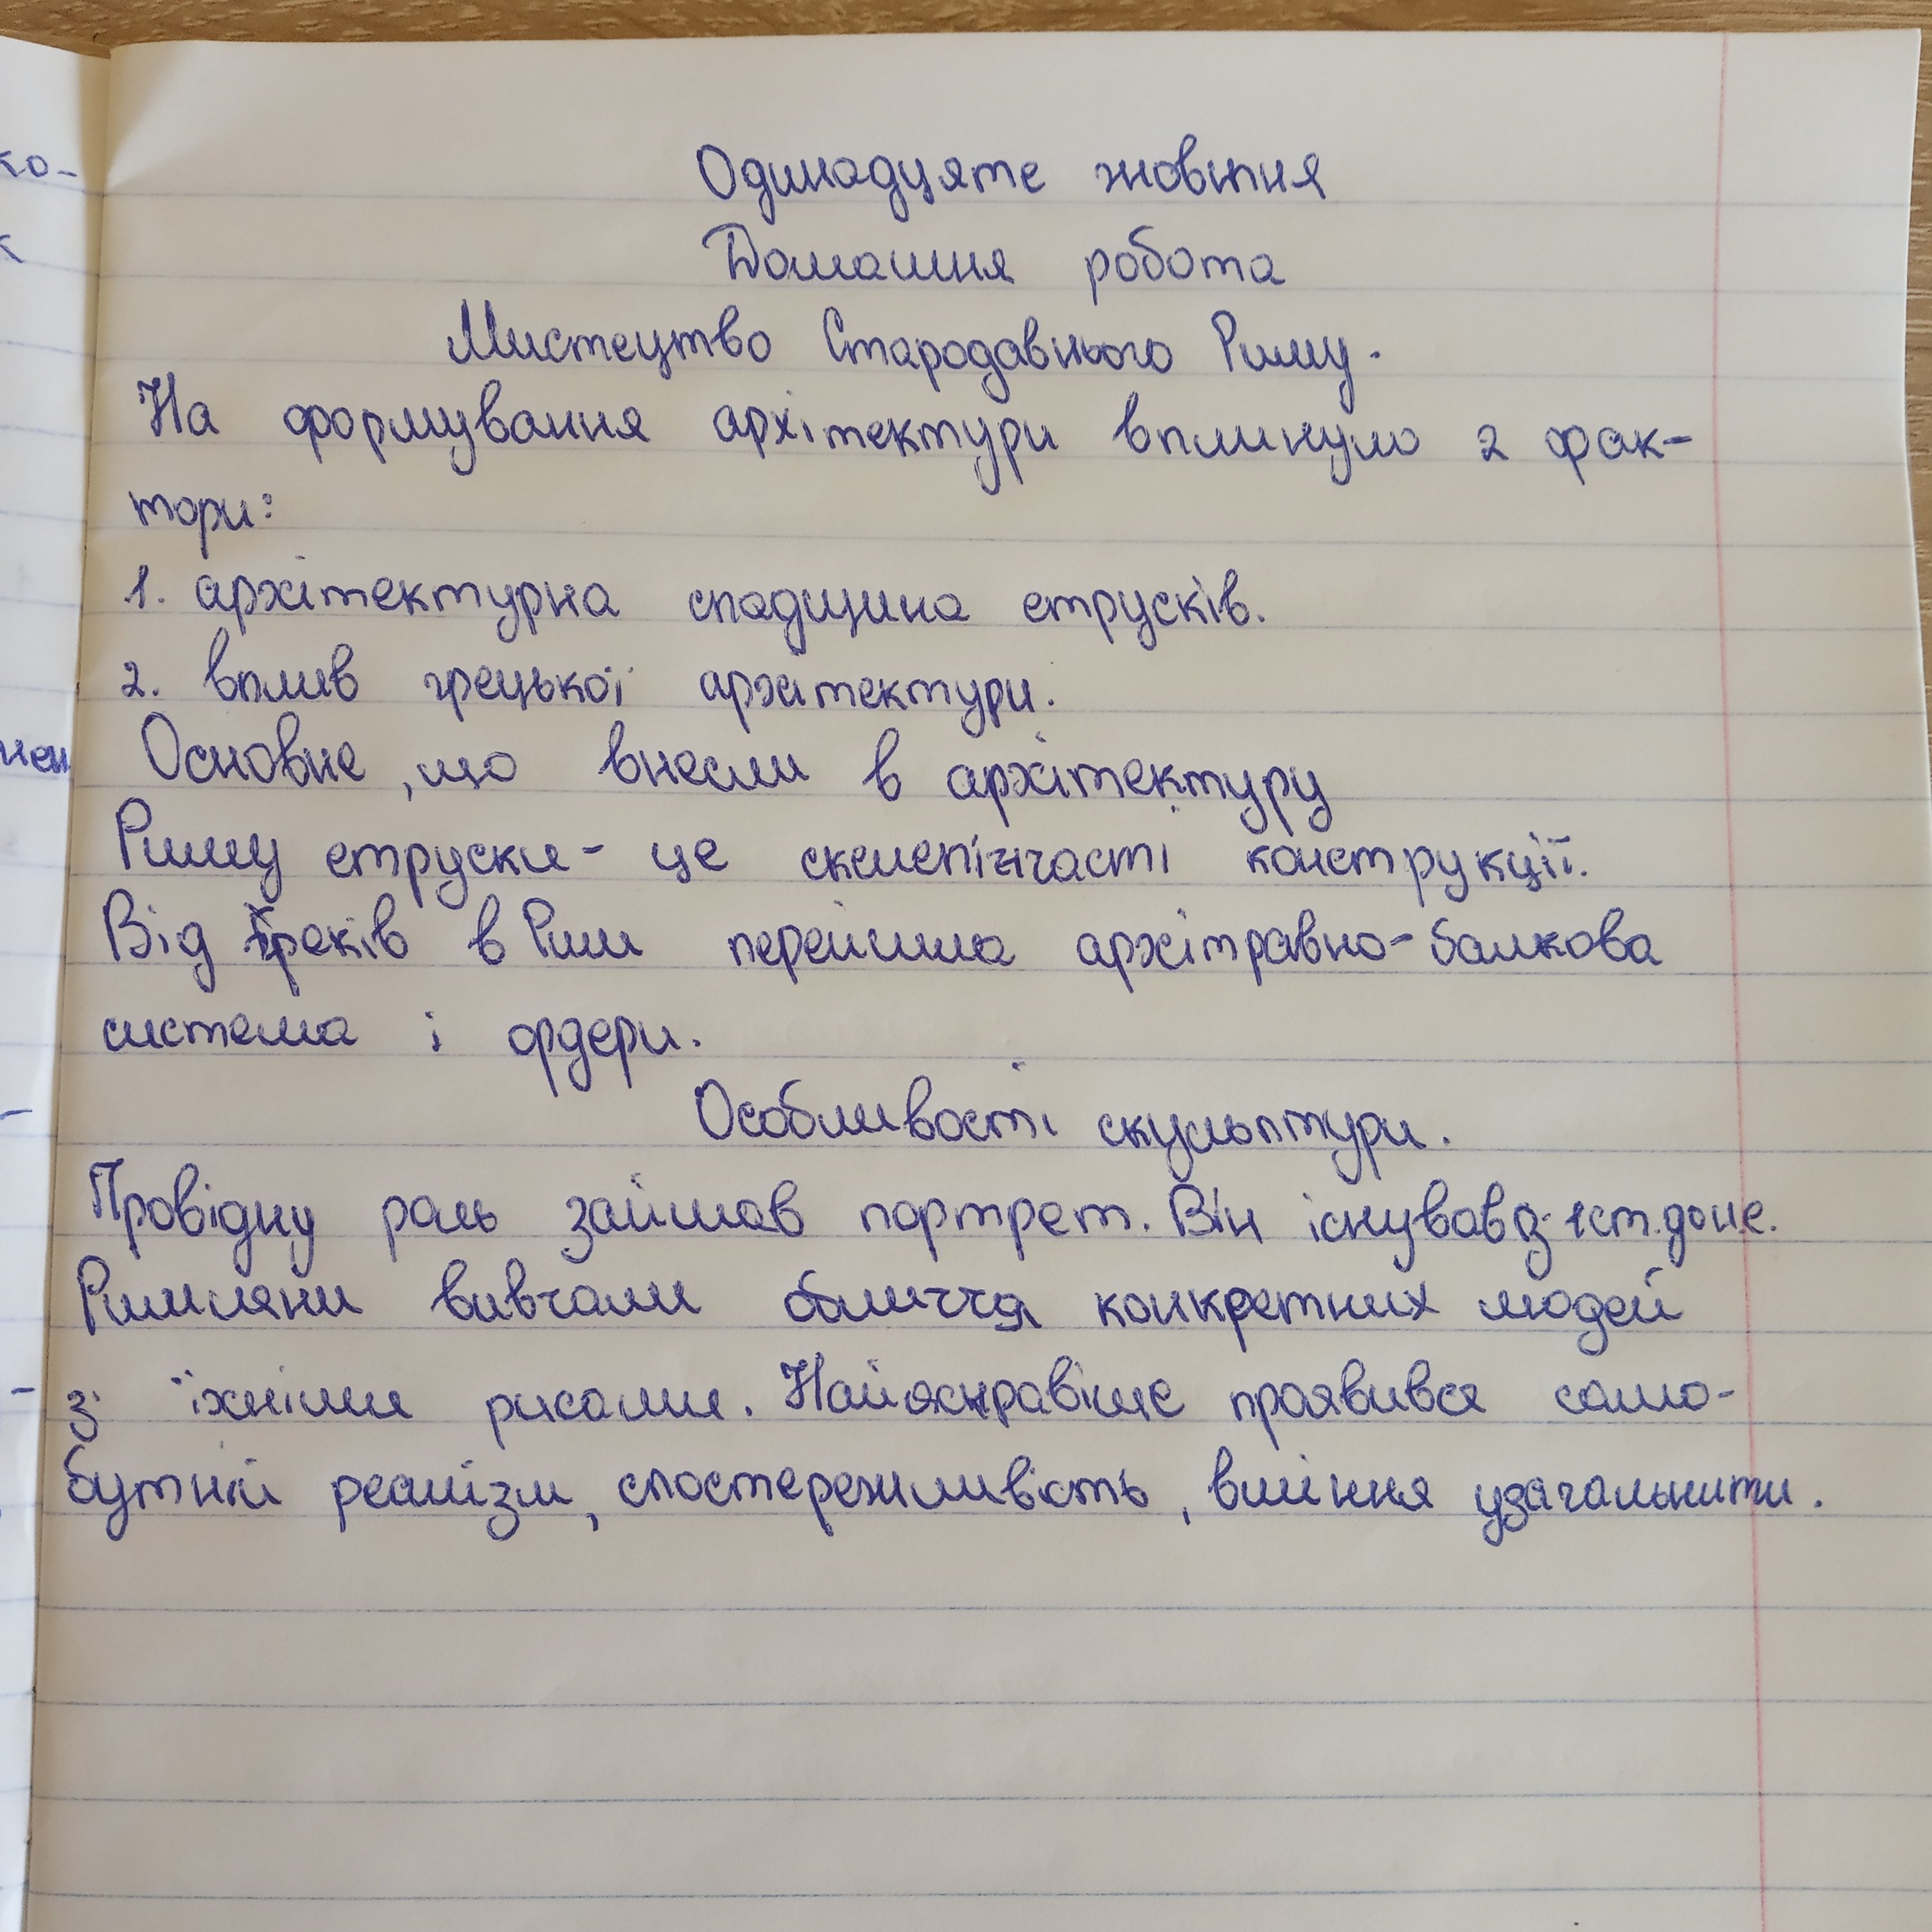 ко-
Одинадцяте жовтня
Домашня робота
Мистецтво Стародавнього Риму.
На формування архітектури вплинуло 2 фак-
тори:
1. архітектурна спадщина етрусків.
2. вплив грецької архітектури.
Основне, що внесли в архітектуру
Риму етруски - це склепінчасті конструкції.
Від греків в Рим перейшла архітравно-балкова
система і ордери.
Особливості скульптури.
Провідну роль займав портрет. Він існував з 1 ст. до н.е.
Римляни вивчали обличчя конкретних людей
з їхніми рисами. Найяскравіше проявився само-
бутній реалізм, спостережливість, вміння узагальнити.